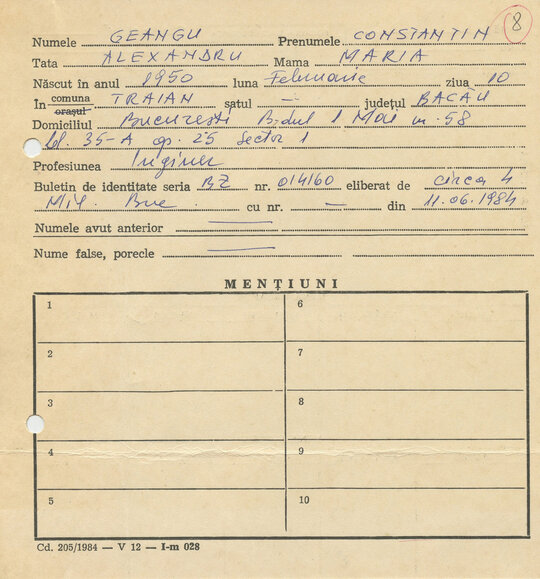 8
Numele GEANGU Prenumele CONSTANTIN
Tata ALEXANDRU Mama MARIA
Născut în anul 1950 luna Februarie ziua 10
În comuna orașul TRAIAN satul — județul BACĂU
Domiciliul București B-dul 1 Mai nr. 58
bl. 35-A ap. 25 sector 1
Profesiunea Inginer
Buletin de identitate seria BZ nr. 014160 eliberat de circa 4
Mil. Buc cu nr. — din 11.06.1984
Numele avut anterior —
Nume false, porecle —
MENȚIUNI
1 6
2 7
3 8
4 9
5 10
Cd. 205/1984 — V 12 — I-m 028